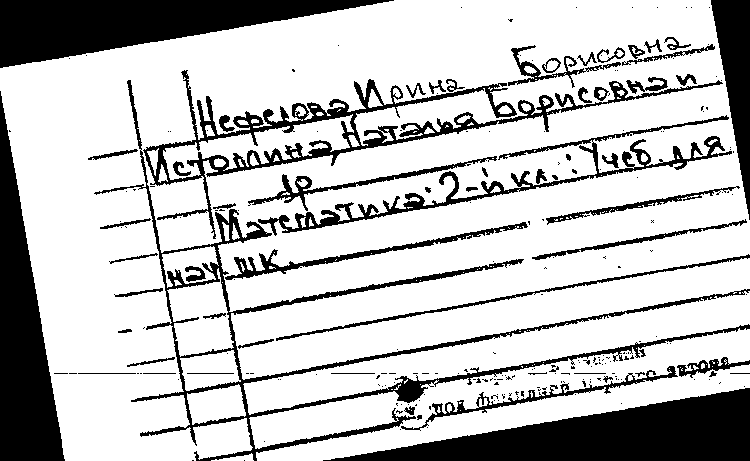 Нефедова Ирина Борисовна
Истомина, Наталья Борисовна и
др
Математика: 2-й кл. : Учеб. для
нач. шк.
см. под фамилией первого автора